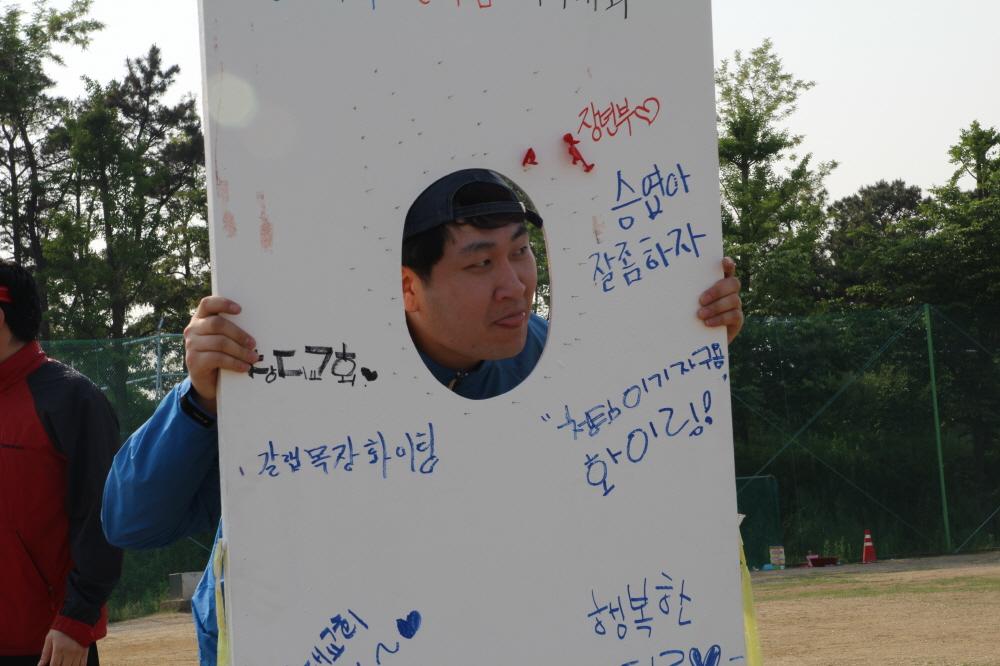 장년부♡
승엽아
잘좀하자
상도교회♥
"청팀이기자구용"
화이링!!
갈렙목장화이팅
교회
행복한